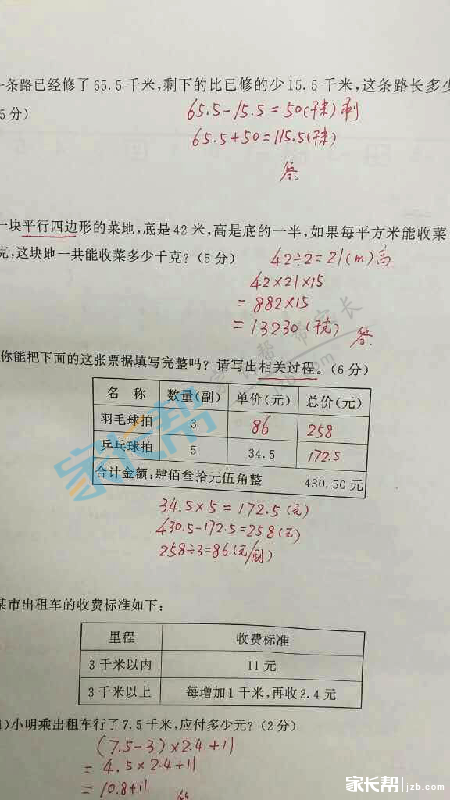 一条路已经修了65.5千米,剩下的比已修的少15.5千米,这条路长多少
5分)
65.5-15.5=50(千米)剩
65.5+50=115.5(千米)
答
一块平行四边形的菜地,底是42米,高是底的一半,如果每平方米能收菜
元,这块地一共能收菜多少千克?(5分)
42÷2=21(m)高
42×21×15
=882×15
=13230(千克)
答
你能把下面的这张票据填写完整吗?请写出相关过程。(6分)
名 称 数量(副) 单价(元) 总价(元)
羽毛球拍 3 86 258
乒乓球拍 5 34.5 172.5
合计金额:肆佰叁拾元伍角整 430.50元
34.5×5=172.5(元)
430.5-172.5=258(元)
258÷3=86(元/副)
某市出租车的收费标准如下:
里程 收费标准
3千米以内 11元
3千米以上 每增加1千米,再收2.4元
)小明乘出租车行了7.5千米,应付多少元?(2分)
(7.5-3)×2.4+11
=4.5×2.4+11
=10.8+11
家长帮 jzb.com